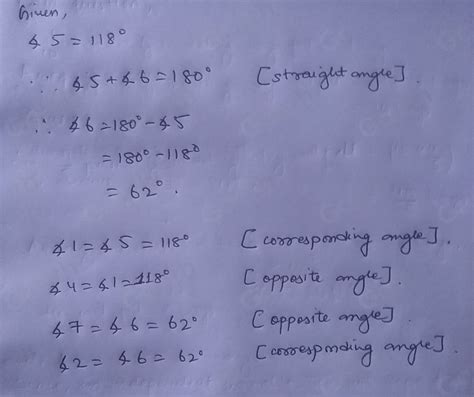 Given,
∡5 = 118°
∵ ∡5 + ∡6 = 180° [straight angle].
∴ ∡6 = 180° - ∡5
= 180° - 118°
= 62°.
∡1 = ∡5 = 118° [corresponding angle].
∡4 = ∡1 = 118° [opposite angle].
∡7 = ∡6 = 62° [opposite angle].
∡2 = ∡6 = 62° [corresponding angle].